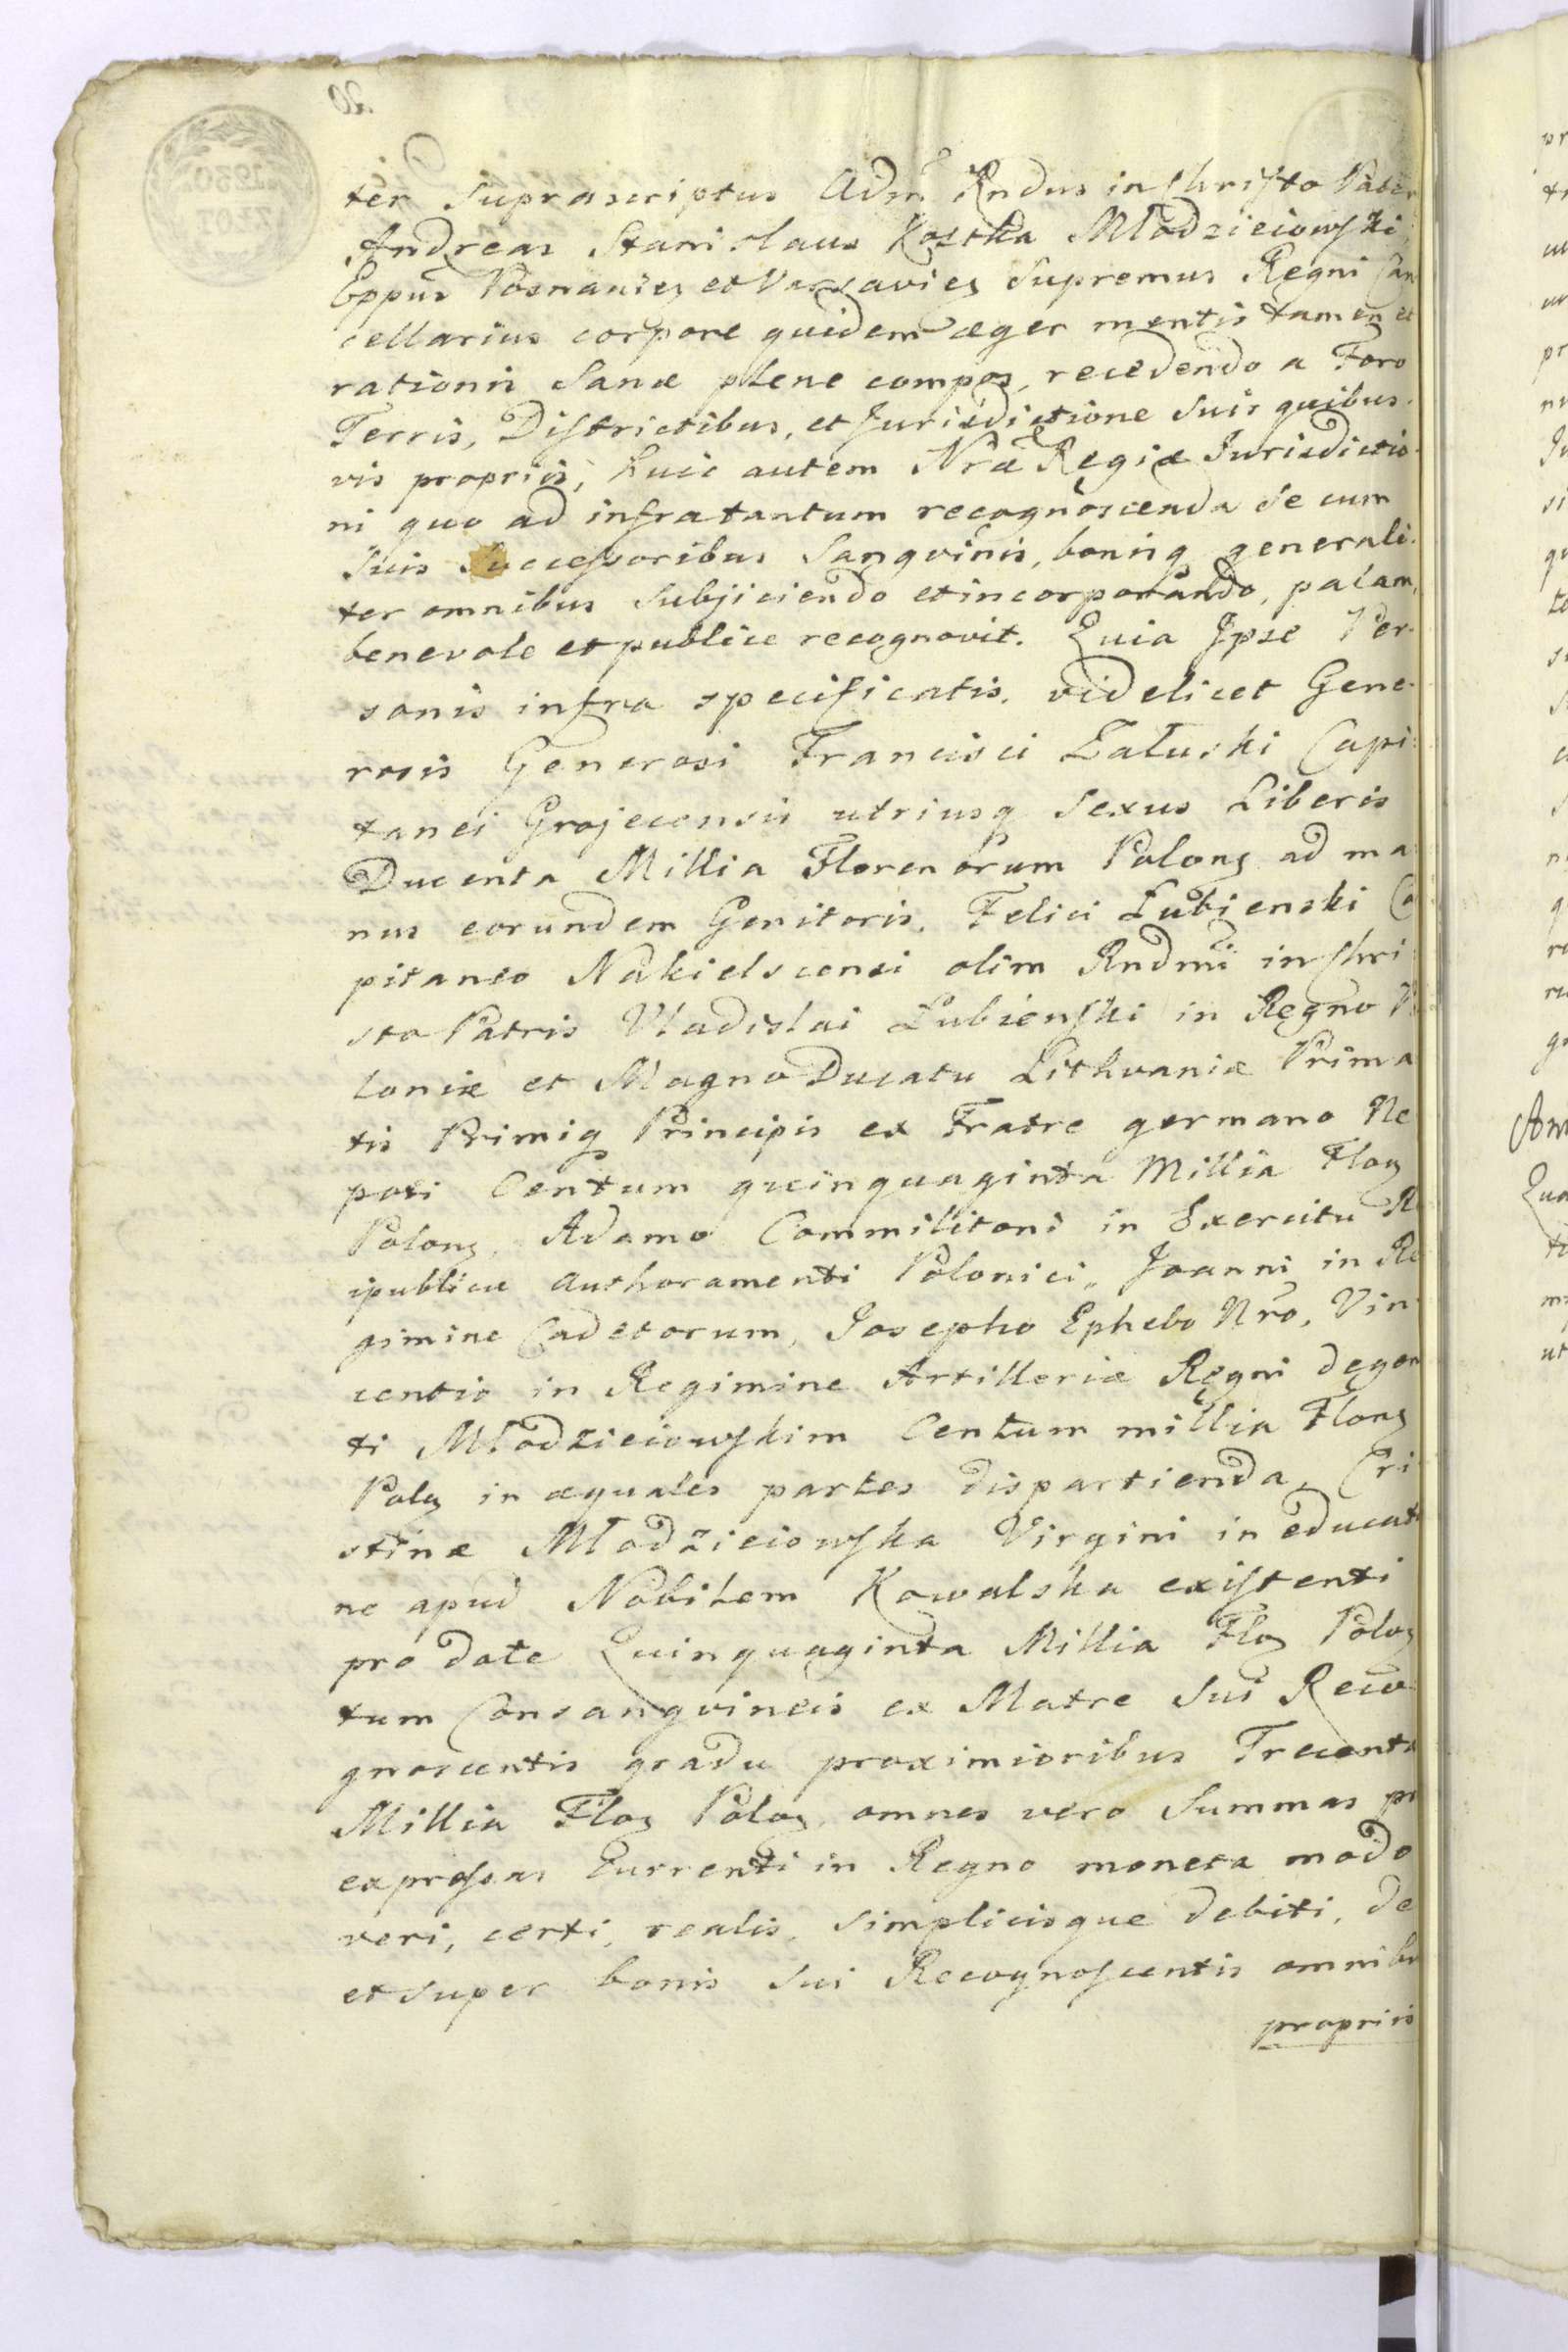 ter Suprascriptus Adm Rndus in Christo Pater
Andreas Stanislaus Kostka Młodzieiowski,
Eppus Posnanies et Varsavies Supremus Regni Can
cellarius corpore quidem æger mentis tamen et
rationis Sanæ plene compos, recedendo a Foro
Terris, Districtibus, et Jurisdictione Suis quibus-
vis propriis, huic autem Nræ Regiæ Jurisdictio-
ni quo ad infratantum recognoscenda se cum
Suis Successoribus Sangvinis, bonisq generali-
ter omnibus Subjiciendo et incorporando, palam,
benevole et publice recognovit. Quia Ipse Per-
sonis infra specificatis, videlicet Gene-
rosis Generosi Francisci Załuski Capi-
tanei Grojecensis utriusq Sexus Liberis
Ducenta Millia Florenorum Polong ad ma
nus eorundem Genitoris, Felici Łubienski Ca
pitaneo Nakielscensi olim Rndmi in Chri-
sto Patris Vladislai Łubienski in Regno P
loniæ et Magno Ducatu Lithvaniæ Prima
tis Primiq Principis ex Fratre germano Ne
poti Centum quinquaginta Millia Flog
Polong, Adamo Commilitoni in Exercitu R
ipublicæ Authoramenti Polonici, Joanni in Re
gimine Cadetorum, Josepho Ephebo Nro, Vin-
centio in Regimine Artilleriæ Regni degen
ti Młodzieiowskim Centum millia Flong
Polog in æquales partes dispartienda, Cri
stinæ Młodzieiowska Virgini in educati
ne apud Nobilem Kowalska existenti
pro dote Quinquaginta Millia Flog Polog
tum Consangvineis ex Matre Sui Reco
gnoscentis gradu proximioribus Trecenta
Millia Flog Polog, omnes vero Summas pr
expressas Currenti in Regno moneta modo
veri, certi, realis, Simplicisque debiti, de
et super bonis Sui Recognoscentis omnibu
propriis